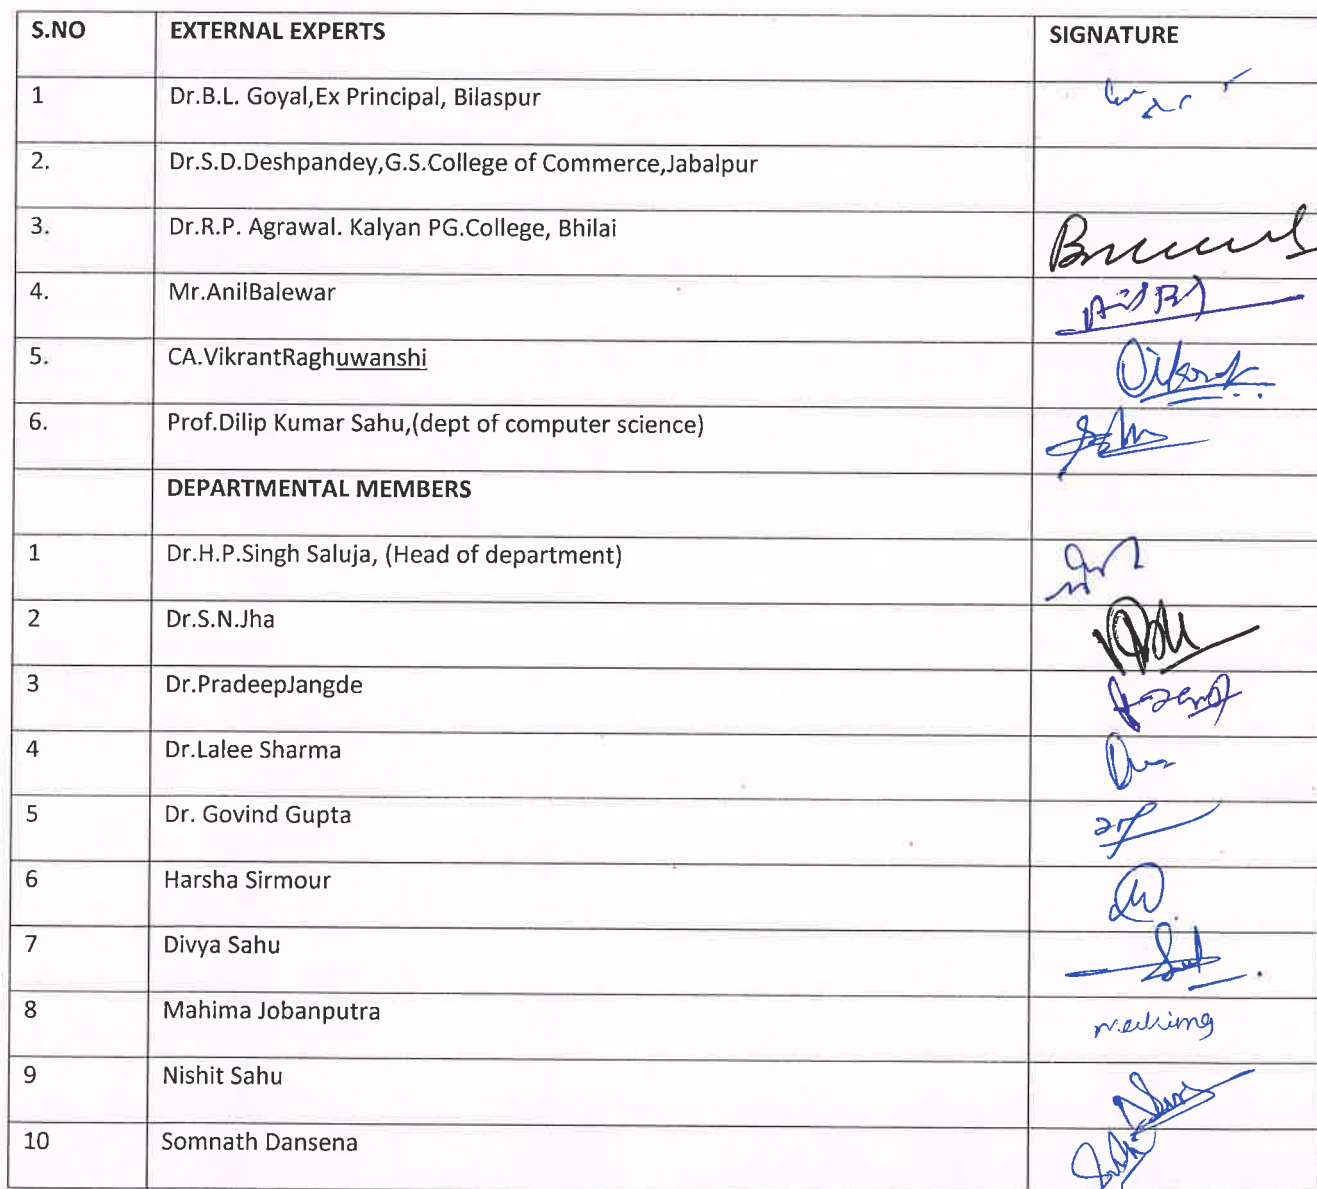 S.NO EXTERNAL EXPERTS SIGNATURE
1 Dr.B.L. Goyal,Ex Principal, Bilaspur
2. Dr.S.D.Deshpandey,G.S.College of Commerce,Jabalpur
3. Dr.R.P. Agrawal. Kalyan PG.College, Bhilai
4. Mr.AnilBalewar
5. CA.VikrantRaghuwanshi
6. Prof.Dilip Kumar Sahu,(dept of computer science)
DEPARTMENTAL MEMBERS
1 Dr.H.P.Singh Saluja, (Head of department)
2 Dr.S.N.Jha
3 Dr.PradeepJangde
4 Dr.Lalee Sharma
5 Dr. Govind Gupta
6 Harsha Sirmour
7 Divya Sahu
8 Mahima Jobanputra
9 Nishit Sahu
10 Somnath Dansena